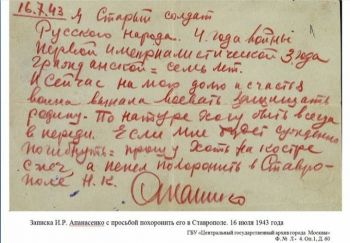 16.7.43 Я Старый солдат
Русского народа. 4 года войны
первой империалистической 3 года
гражданской = семь лт.
И сейчас на мою долю и счастья
воина выпала воевать защищать
родину. По натуре хочу быть всегда
в переди. Если мне будет суждено
погибнуть = прошу хоть на костре
сжеч а пепел похоронить в Ставро-
поле Н.К.
Опанасенко
Записка И.Р. Апанасенко с просьбой похоронить его в Ставрополе. 16 июля 1943 года
ГБУ «Центральный государственный архив города Москвы»
Ф. № Л - 4. Оп.1, Д. 60